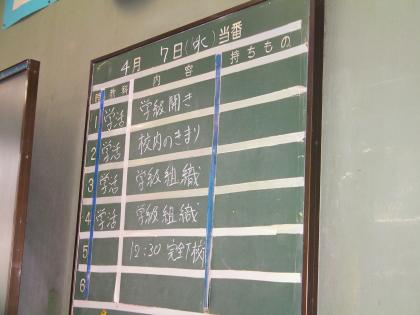 4月 7日(水)当番
教科 内容 持ちもの
1 学活 学級開き
2 学活 校内のきまり
3 学活 学級組織
4 学活 学級組織
5 12:30 完全下校
6